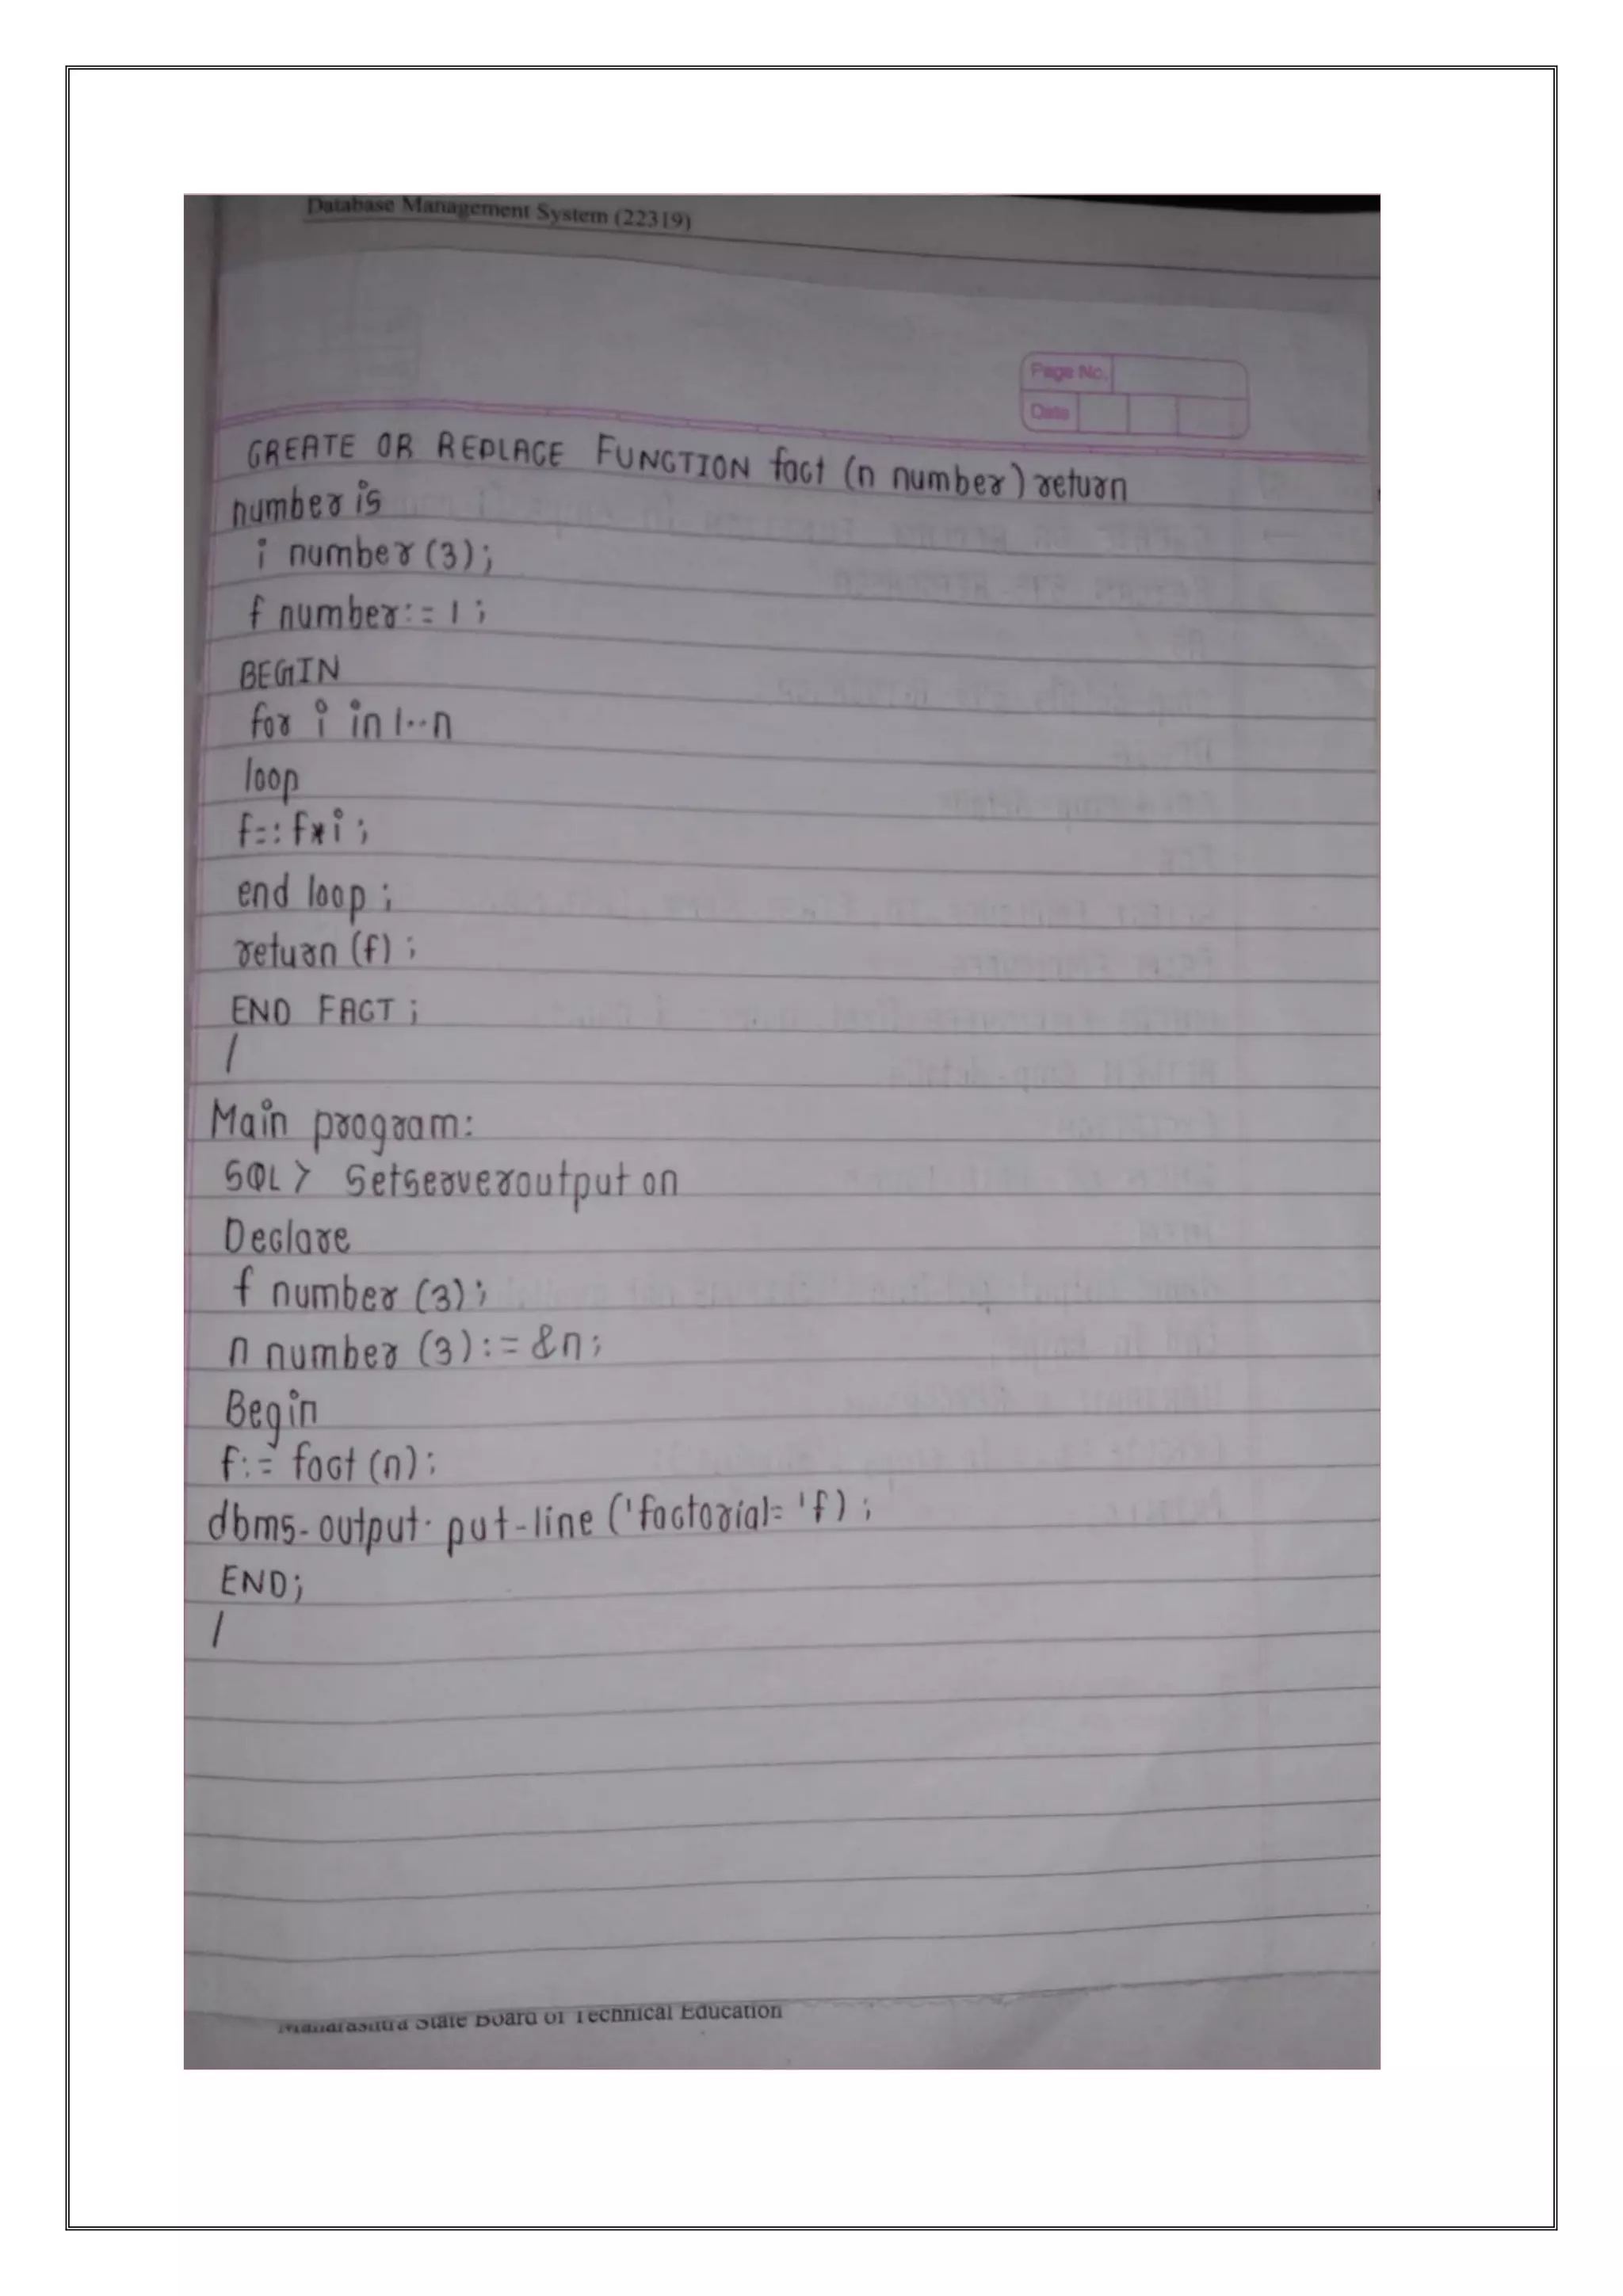 Database Management System (22319)
Page No.
Date
CREATE OR REPLACE FUNCTION fact (n number) return
number is
i number (3);
f number:= 1;
BEGIN
for i in 1..n
loop
f=: f*i;
end loop;
return (f);
END FACT;
/
Main program:
SQL> Setserveroutput on
Declare
f number (3);
n number (3):= &n;
Begin
f:= fact (n);
dbms-output. put-line ('factorial= 'f);
END;
/
Maharashtra State Board of Technical Education